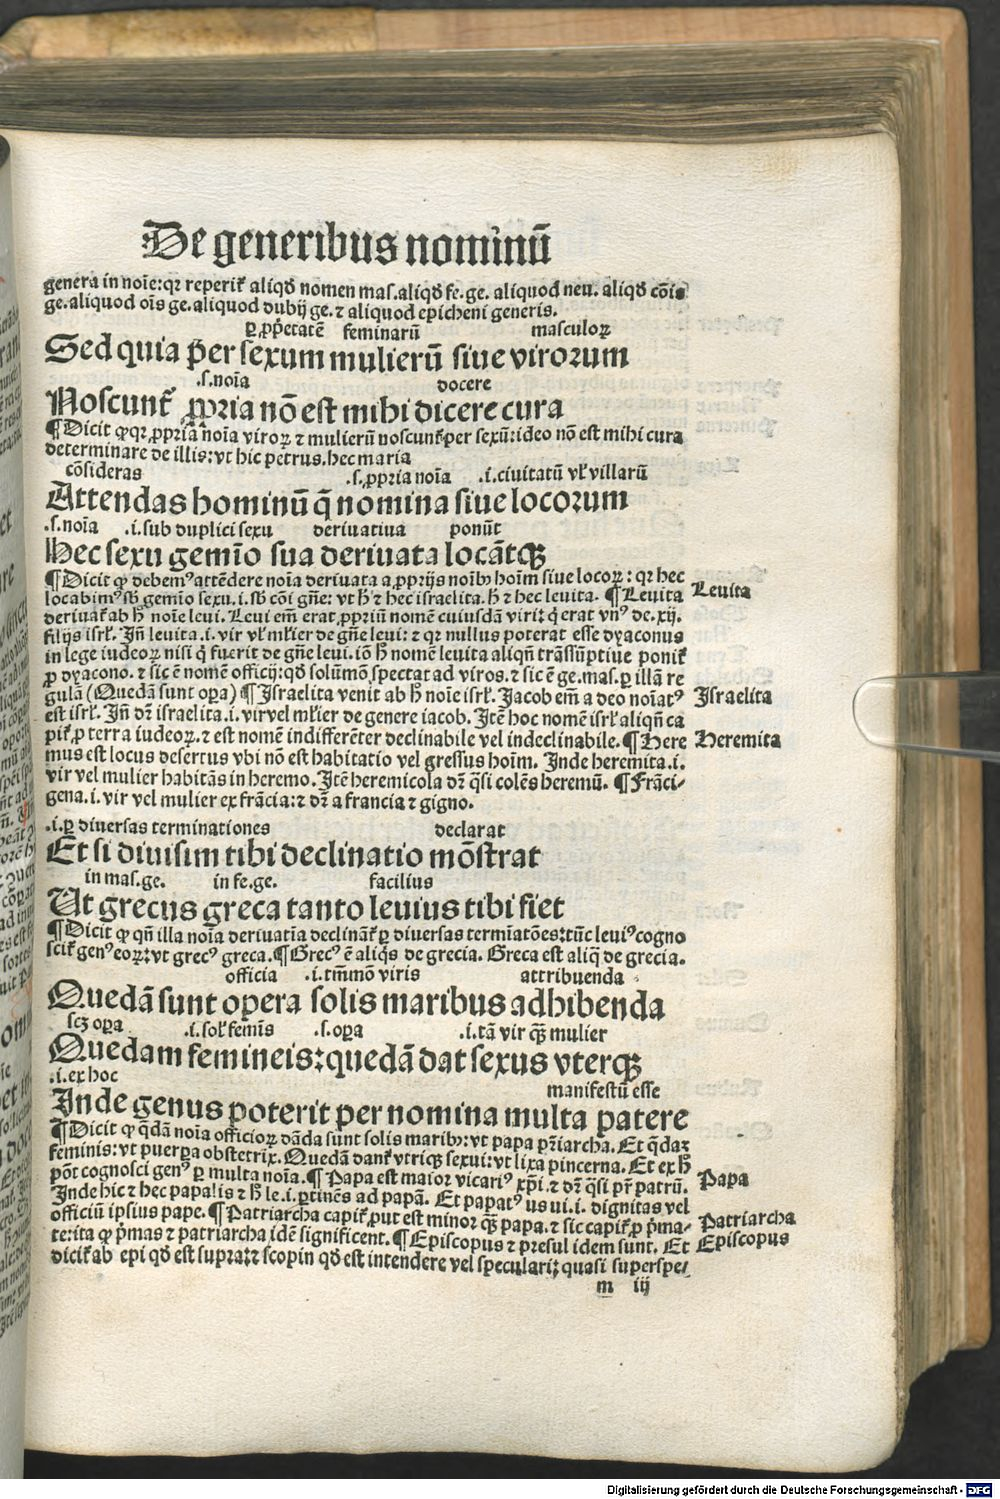 De generibus nominū
genera in noīe: qꝛ reperit᷑ aliqd̓ nomen mas. aliqd̓ fe. ge. aliquod neu. aliqd̓ cōis
ge. aliquod oīs ge. aliquod dubij ge. ⁊ aliquod epicheni generis.
ꝑ ꝓp̓etatē feminarū masculoꝝ
Sed quia p̄er sexum mulierū siue virorum
.s. noīa docere
Noscunt᷑ ꝓpria nō est mihi dicere cura
¶ Dicit ꝙ qꝛ ꝓpria noīa viroꝝ ⁊ mulierū noscunt᷑ per sexū: ideo nō est mihi cura
determinare de illis: vt hic petrus. hec maria
cōsideras .s. ꝓpria noīa .i. ciuitatū vl̓ villarū
Attendas hominū q̄ nomina siue locorum
.s. noīa .i. sub duplici sexu deriuatiua ponūt
Hec sexu gemīo sua deriuata locātqꝫ
¶ Dicit ꝙ debemꝰ attēdere noīa deriuata a ꝓprijs noībꝰ hoīm siue locoꝝ: qꝛ hec
locabimꝰ sb̓ gemīo sexu. i. sb̓ cōi gn̄e: vt h̄ ⁊ hec israelita. h̄ ⁊ hec leuita. ¶ Leuita
Leuita
deriuat᷑ ab h̄ noīe leui. Leui em̄ erat ꝓpriū nomē cuiusdā viri: q̓ erat vnꝰ de .xij.
filijs isrl̓. In̄ leuita .i. vir vl̓ ml̓ier de gn̄e leui: ⁊ qꝛ nullus poterat esse dyaconus
in lege iudeoꝝ nisi q̓ fuerit de gn̄e leui. iō h̄ nomē leuita aliqn̄ trāssūptiue ponit᷑
ꝓ dyacono. ⁊ sic ē nomē officij: qd̓ solūmō spectat ad viros. ⁊ sic ē ge. mas. ꝑ illā re
gulā (Quedā sunt oꝑa) ¶ Israelita venit ab h̄ noīe isrl̓. Jacob em̄ a deo noīatꝰ
Israelita
est isrl̓. In̄ dꝛ̄ israelita .i. vir vel ml̓ier de genere iacob. Itē hoc nomē isrl̓ aliqn̄ ca
pit᷑ ꝓ terra iudeoꝝ. ⁊ est nomē indifferēter declinabile vel indeclinabile. ¶ Here
Heremita
mus est locus desertus vbi nō est habitatio vel gressus hoīm. Inde heremita .i.
vir vel mulier habitās in heremo. Itē heremicola dꝛ̄ q̄si colēs heremū. ¶ Frāci-
gena .i. vir vel mulier ex frācia: ⁊ dꝛ̄ a francia ⁊ gigno.
.i. ꝑ diuersas terminationes declarat
Et si diuisim tibi declinatio mōstrat
in mas. ge. in fe. ge. facilius
Ut grecus greca tanto leuius tibi fiet
¶ Dicit ꝙ qn̄ illa noīa deriuatīa declinānt᷑ ꝑ diuersas termīatōes: tūc leuiꝰ cogno
scit᷑ genꝰ eoꝝ: vt grecꝰ greca. ¶ Grecꝰ ē aliq̓s de grecia. Greca est aliq̄ de grecia.
officia .i. tm̄mō viris attribuenda
Quedā sunt opera solis maribus adhibenda
scꝫ oꝑa .i. sol̓ femīs .s. oꝑa .i. tā vir qꝫ mulier
Quedam femineis: quedā dat sexus vterqꝫ
.i. ex hoc manifestū esse
Inde genus poterit per nomina multa patere
¶ Dicit ꝙ q̄dā noīa officioꝝ dāda sunt solis maribꝰ: vt papa pr̄iarcha. Et q̄daꝫ
feminis: vt puerꝑa obstetrix. Quedā dant᷑ vtriqꝫ sexui: vt lixa pincerna. Et ex h̄
pōt cognosci genꝰ ꝑ multa noīa. ¶ Papa est maior vicariꝰ xp̄i. ⁊ dꝛ̄ q̄si pr̄ patrū.
Papa
Inde hic ⁊ hec papalis ⁊ h̄ le .i. ꝑtinēs ad papā. Et papatꝰ us ui .i. dignitas vel
officiū ipsius pape. ¶ Patriarcha capit᷑ put est minor qꝫ papa. ⁊ sic capit᷑ ꝓ p̓ma-
Patriarcha
te: ita ꝙ p̓mas ⁊ patriarcha idē significent. ¶ Episcopus ⁊ presul idem sunt. Et
Episcopus
dicit᷑ ab epi qd̓ est supra: ⁊ scopin qd̓ est intendere vel speculari: quasi superspe-
m iij
Digitalisierung gefördert durch die Deutsche Forschungsgemeinschaft - DFG